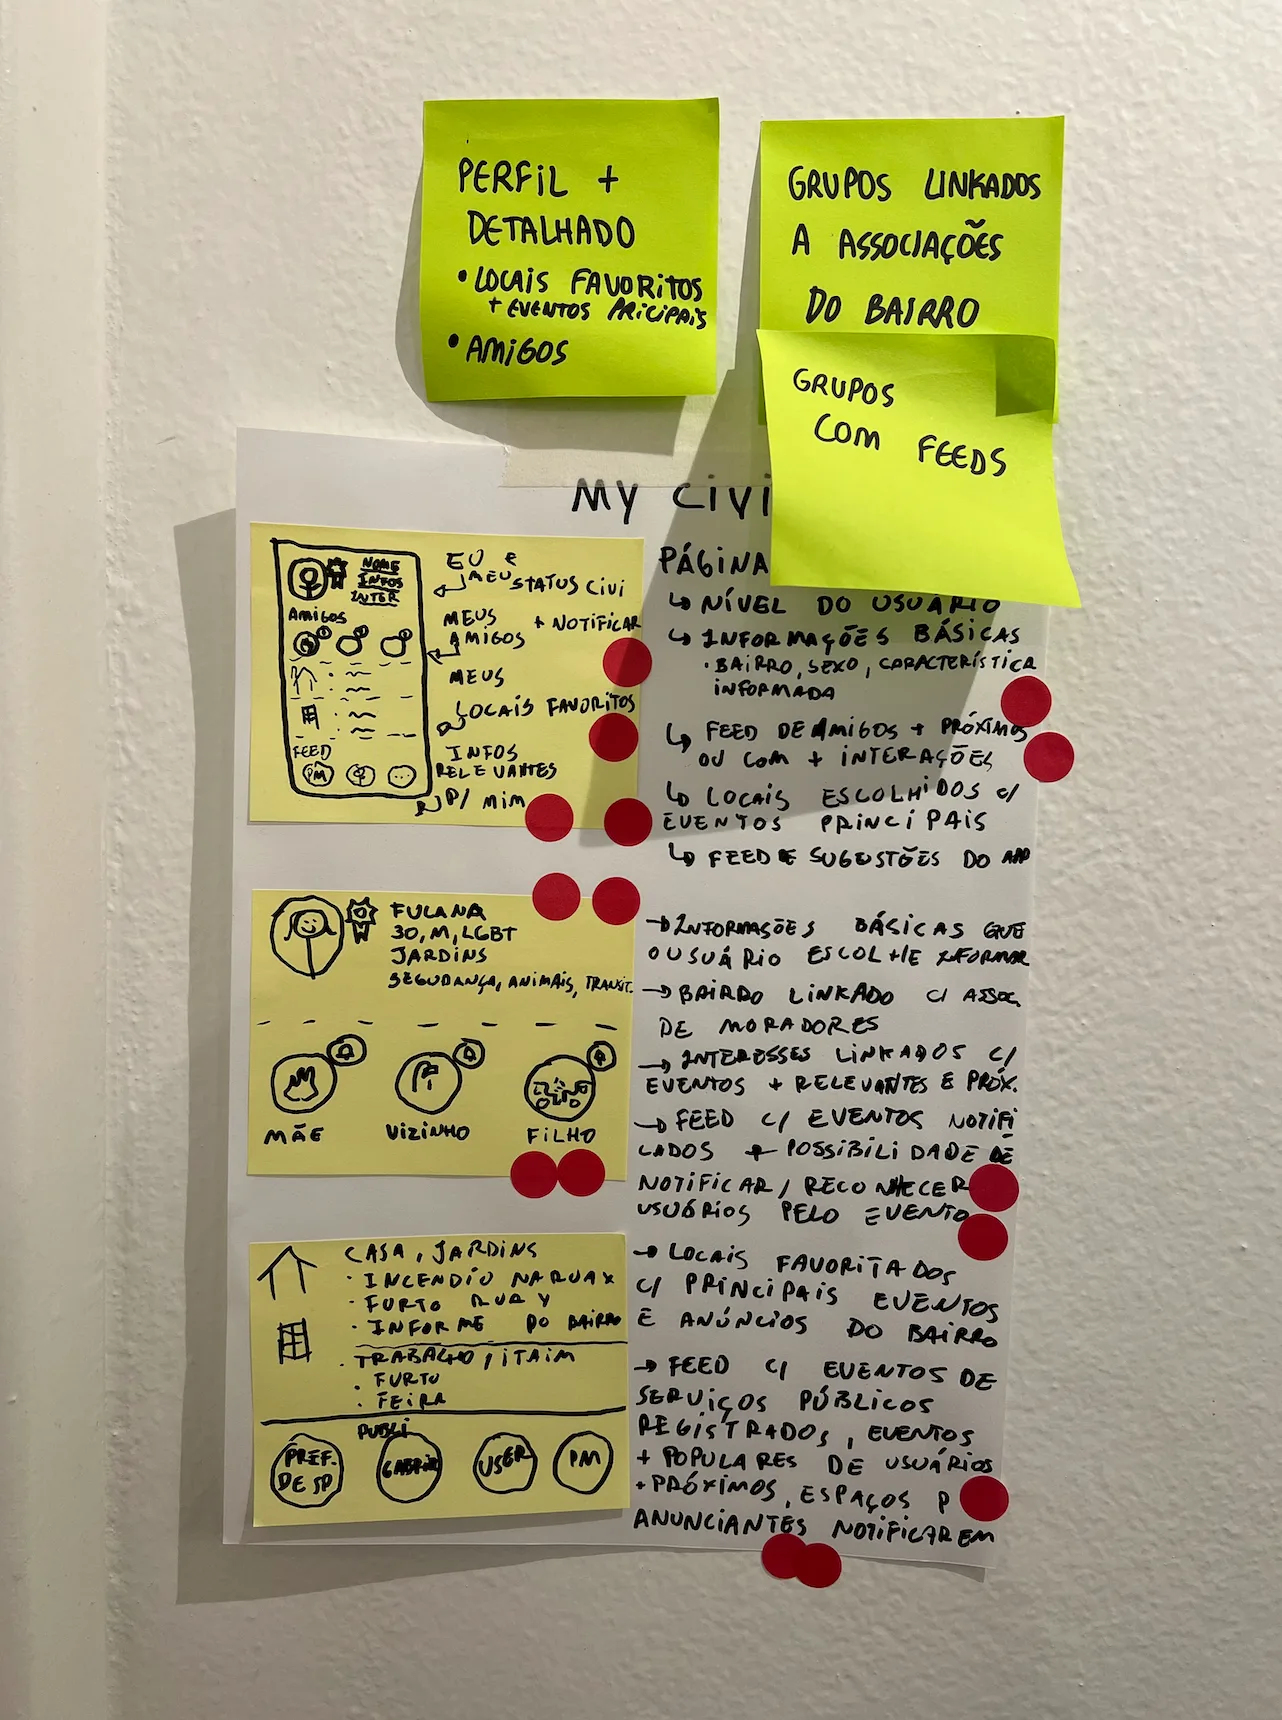 PERFIL +
DETALHADO
• LOCAIS FAVORITOS
+ EVENTOS PRICIPAIS
• AMIGOS
GRUPOS LINKADOS
A ASSOCIAÇÕES
DO BAIRRO
GRUPOS
COM FEEDS
MY CIVI
NOME
INFOS
INTER
AMIGOS
FEED
PM
...
EU E
MEU STATUS CIVI
MEUS + NOTIFICAR
AMIGOS
MEUS
LOCAIS FAVORITOS
INFOS
RELEVANTES
P/ MIM
PÁGINA
↳ NÍVEL DO USUÁRIO
↳ INFORMAÇÕES BÁSICAS
• BAIRRO, SEXO, CARACTERÍSTICA
INFORMADA
↳ FEED DE AMIGOS + PRÓXIMOS
OU COM + INTERAÇÕES
↳ LOCAIS ESCOLHIDOS C/
EVENTOS PRINCIPAIS
↳ FEED E SUGESTÕES DO APP
FULANA
30, M, LGBT
JARDINS
SEGUDANÇA, ANIMAIS, TRANSIT.
MÃE
VIZINHO
FILHO
→ INFORMAÇÕES BÁSICAS QUE
O USUÁRIO ESCOLHE INFORMAR
→ BAIRRO LINKADO C/ ASSOC.
DE MORADORES
→ INTERESSES LINKADOS C/
EVENTOS + RELEVANTES E PRÓX.
→ FEED C/ EVENTOS NOTIFI
CADOS + POSSIBILIDADE DE
NOTIFICAR/RECONHECER
USUÁRIOS PELO EVENTO
CASA, JARDINS
• INCENDIO NA RUA X
• FURTO RUA Y
• INFORME DO BAIRRO
• TRABALHO, ITAIM
• FURTO
• FEIRA
PUBLI
PREF.
DE SP
USER
PM
→ LOCAIS FAVORITADOS
C/ PRINCIPAIS EVENTOS
E ANÚNCIOS DO BAIRRO
→ FEED C/ EVENTOS DE
SERVIÇOS PÚBLICOS
REGISTRADOS, EVENTOS
+ POPULARES DE USUÁRIOS
+ PRÓXIMOS, ESPAÇOS P
ANUNCIANTES NOTIFICAREM